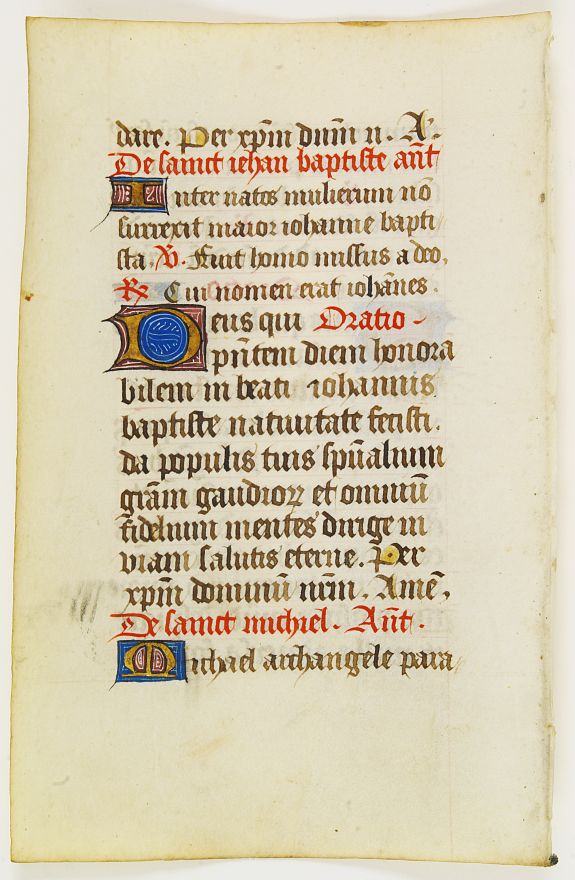 dare. Per xp̄m dnm̄ n. A.
De sainct iehan baptiste an̄t
Inter natos mulierum nō
surrexit maior iohanne bapti
sta. V. Fuit homo missus a deo.
R Cui nomen erat ioha̅nes.
Deus qui Oratio
pn̄tem diem honora
bilem in beati iohannis
baptiste natiuitate fecisti.
da populis tuis spū̄alium
grām gaudioꝝ et omniū
fidelium mentes dirige in
viam salutis eterne. Per
xp̄m dominū nrm̄. Amē.
De sainct michiel. An̄t.
Michael archangele para